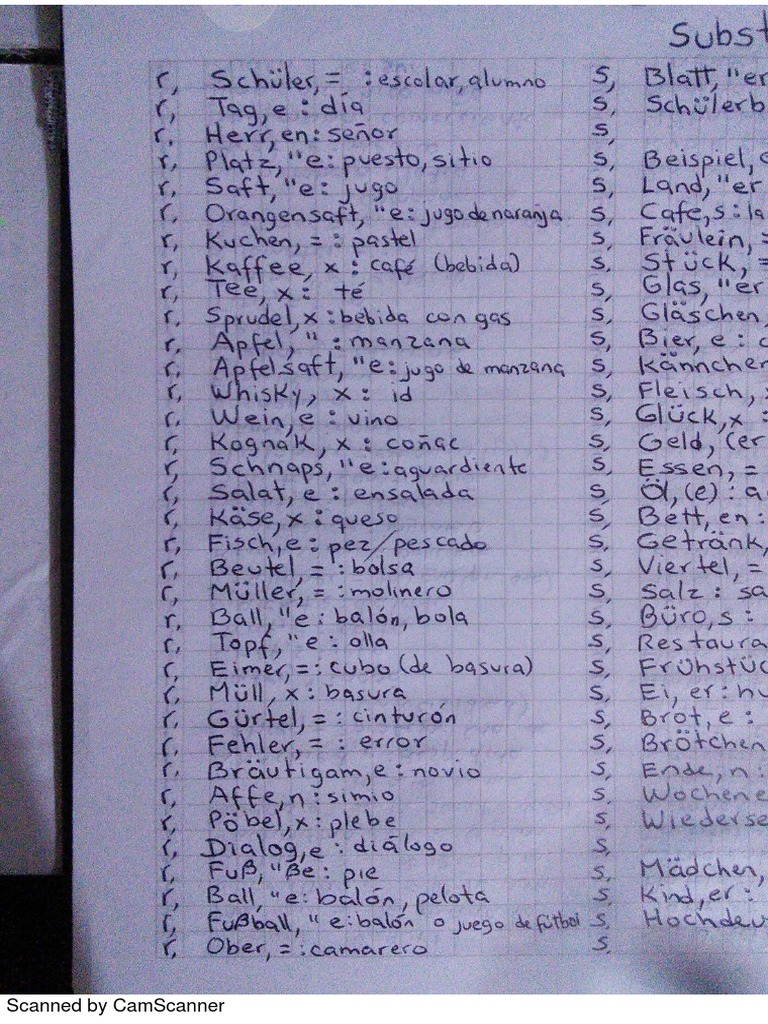 Subst
r, Schüler, = : escolar, alumno
r, Tag, e : día
r. Herr, en: señor
r, Platz, "e: puesto, sitio
r, Saft, "e: jugo
r, Orangensaft, "e: jugo de naranja
r, Kuchen, = : pastel
r, Kaffee, x : café (bebida)
r, Tee, x : té
r, Sprudel, x : bebida con gas
r, Apfel, " : manzana
r, Apfelsaft, "e: jugo de manzana
r, Whisky, x : id
r, Wein, e : vino
r, Kognak, x : coñac
r, Schnaps, "e: aguardiente
r, Salat, e : ensalada
r, Käse, x : queso
r, Fisch, e : pez/pescado
r, Beutel, = : bolsa
r, Müller, = : molinero
r, Ball, "e : balón, bola
r, Topf, "e : olla
r, Eimer, =: cubo (de basura)
r, Müll, x : basura
r, Gürtel, = : cinturón
r, Fehler, = : error
r, Bräutigam, e : novio
r, Affe, n : simio
r, Pöbel, x : plebe
r, Dialog, e : diálogo
r, Fuß, "ße : pie
r, Ball, "e : balón, pelota
r, Fußball, "e: balón o juego de fútbol
r, Ober, = : camarero
s, Blatt, "er
s, Schülerb
s,
s, Beispiel, e
s, Land, "er
s, Cafe, s : la
s, Fräulein, =
s, Stück, =
s, Glas, "er
s, Gläschen,
s, Bier, e : c
s, Kännchen
s, Fleisch, x
s, Glück, x :
s, Geld, (er
s, Essen, =
s, Öl, (e) : a
s, Bett, en :
s, Getränk,
s, Viertel, =
s, Salz : sa
s, Büro, s :
s, Restaura
s, Frühstüc
s, Ei, er : hu
s, Brot, e :
s, Brötchen
s, Ende, n :
s, Wochene
s, Wiederse
s,
s, Mädchen,
s, Kind, er :
s, Hochdeu
s,
Scanned by CamScanner